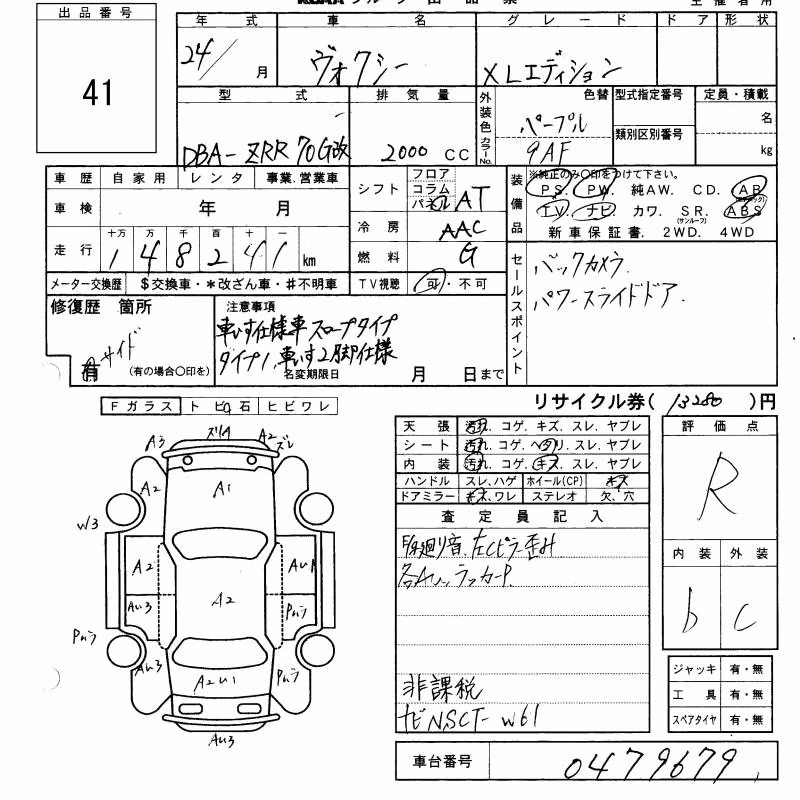 出品番号
41
年 式 車 名 グレード ドア 形状
24/ 月 ヴォクシー XLエディション
型 式 排気量 外装色 色替 型式指定番号 定員・積載
カラーNo. パープル 類別区別番号 名
DBA-ZRR70G改 2000 CC 9AF kg
車歴 自家用 レンタ 事業.営業車
車検 年 月
走行 十万 万 千 百 十 一
1 4 8 2 4 1 km
メーター交換歴 $交換車・*改ざん車・#不明車
シフト フロア コラム パネル AT
冷房 AAC
燃料 G
TV視聴 可・不可
装備品 ※純正のみ〇印をつけて下さい。
PS. PW. 純AW. CD. AB
TV. ナビ. カワ. SR. ABS
(サンルーフ)
新車保証書. 2WD. 4WD
セールスポイント
バックカメラ
パワースライドドア.
修復歴 箇所
サイド
有 (有の場合〇印を)
注意事項
車いす仕様車スロープタイプ
タイプ1,車いす2脚仕様
名変期限日 月 日まで
リサイクル券( 13280 )円
Fガラス トビ石 ヒビワレ
天張 汚れ. コゲ. キズ. スレ. ヤブレ
シート 汚れ. コゲ. ヘタリ. スレ. ヤブレ
内装 汚れ. コゲ. キズ. スレ. ヤブレ
ハンドル スレ.ハゲ ホイール(CP) キズ
ドアミラー キズ.ワレ ステレオ 欠.穴
査定員記入
左Cピラー歪み
非課税
ナビNSCT-W61
評価点
R
内装 外装
b c
ジャッキ 有・無
工具 有・無
スペアタイヤ 有・無
車台番号 0479679
A3 ズリA A2 ズレ
A2 A1
W3
A2 AU1
AU3 A2 Pハラ
Pハラ
AU3 A2U1 Pハラ
AU3